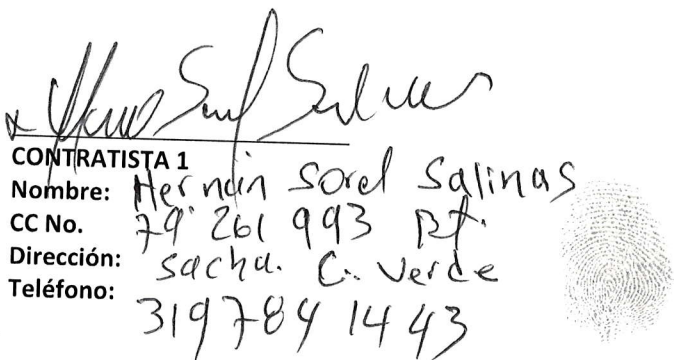 CONTRATISTA 1
Nombre: Hernán Sorel Salinas
CC No. 79 261 993 Bt.
Dirección: Sacha. C. Verde
Teléfono: 319 784 1443